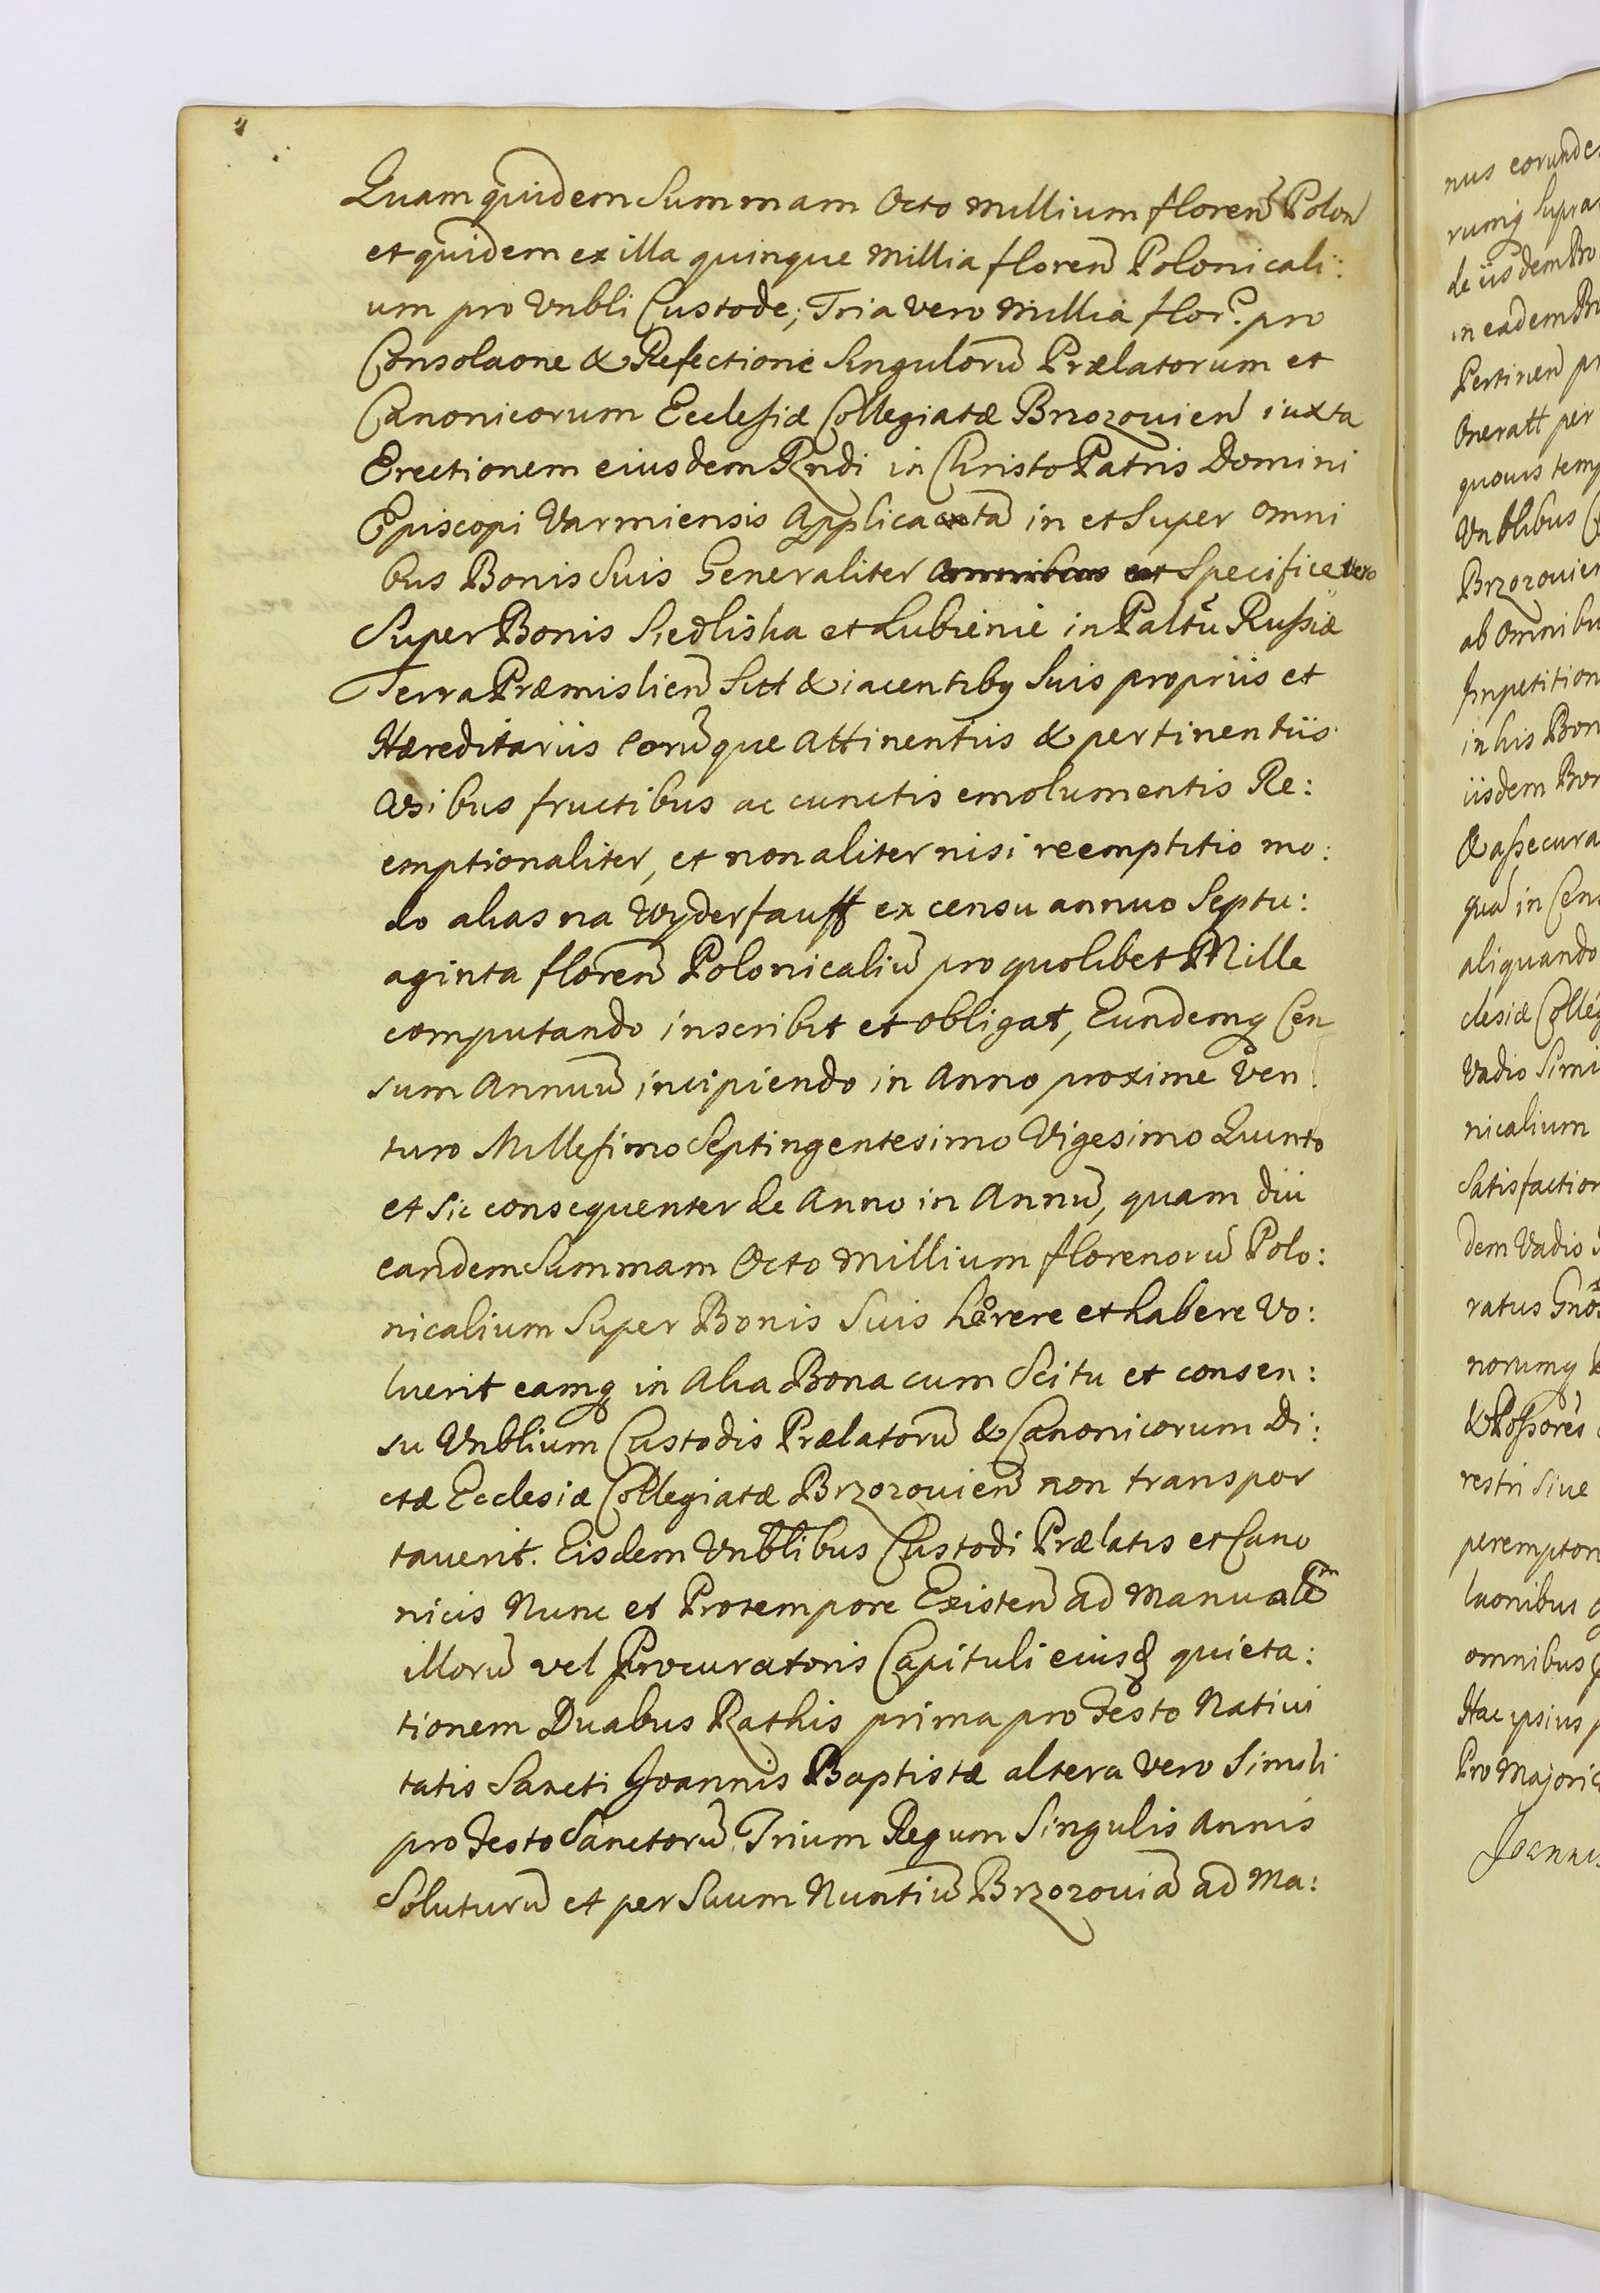 Quam quidem Summam Octo Millium floren Polon
et quidem ex illa quinque Millia floren Polonicali:
um pro Vnbli Custode; Tria vero Millia flor: pro
Consolaone & Refectione Singuloru Prælatorum et
Canonicorum Ecclesiæ Collegiatæ Brzozouien iuxta
Erectionem eiusdem Rndi in Christo Patris Domini
Episcopi Varmiensis Applicata in et Super omni
bus Bonis Suis Generaliter omnibus et Specifice vero
Super Bonis Siedliska et Lubienie in Paltu Russiæ
Terra Præmislien Sitt & iacentibq Suis propriis et
Hæreditariis eoruque attinentiis & pertinentiis
Vsibus fructibus ac cunctis emolumentis Re:
emptionaliter, et non aliter nisi reemptitio mo:
do alias na Wyderkauff ex censu annuo Septu:
aginta floren Polonicaliu pro quolibet Mille
computando inscribit et obligat, Eundemq Cen
sum Annuu incipiendo in Anno proxime Ven:
turo Millesimo Septingentesimo Vigesimo Quinto
et sic consequenter de Anno in Annu, quam diu
eandem Summam Octo Millium florenoru Polo:
nicalium Super Bonis Suis hærere et habere Vo:
luerit eamq in Alia Bona cum Scitu et consen:
su Vnblium Custodis Prælatoru & Canonicorum Di:
ctæ Ecclesiæ Collegiatæ Brzozouien non transpor
tauerit. Eisdem Vnblibus Custodi Prælatis et Cano
nicis Nunc et Protempore Existen ad Manualem
illoru vel Procuratoris Capituli eiusd quieta:
tionem Duabus Rathis prima pro Festo Natiui
tatis Sancti Joannis Baptistæ altera Vero Simili
pro Festo Sanctoru Trium Regum Singulis Annis
Soluturu et per Suum Nuntiu Brzozouia ad Ma:
nus eorunde
rumq Supra
de iisdem Bo
in eadem
Pertinen
Oneratt per
quouis temp
Vnblibus
Brzozouien
ab omnibu
Impetition
in his Bon
iisdem Bon
& assecura
qua in Cen
aliquando
clesiæ Colleg
Vadio Simi
nicalium
Satisfaction
dem Vadio
ratus Gnos
norumq
& Possores
restri siue
perempton
luonibus
omnibus
Hac ipsius
Pro Majori
Joannes